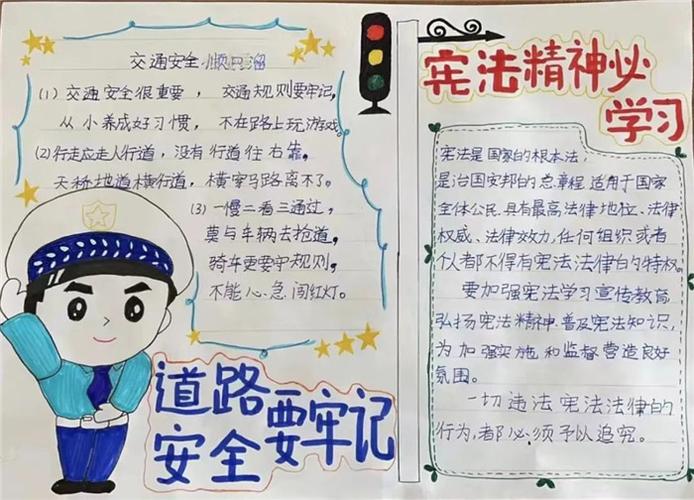 交通安全
(1) 交通安全很重要，交通规则要牢记,
从小养成好习惯，不在路上玩游戏。
(2)行走应走人行道，没有行道往右靠。
天桥地道横行道，横穿马路离不了。
(3) 一慢二看三通过，
莫与车辆去抢道。
骑车更要守规则，
不能心急闯红灯。
道路
安全要牢记
宪法精神必
学习
宪法是国家的根本法;
是治国安邦的总章程 适用于国家
全体公民.具有最高法律地位、法律
权威、法律效力,任何组织或者
个人都不得有宪法法律的特权。
要加强宪法学习宣传教育
弘扬宪法精神.普及宪法知识,
为加强实施和监督营造良好
氛围。
一切违法宪法法律的
行为,都必须予以追究。